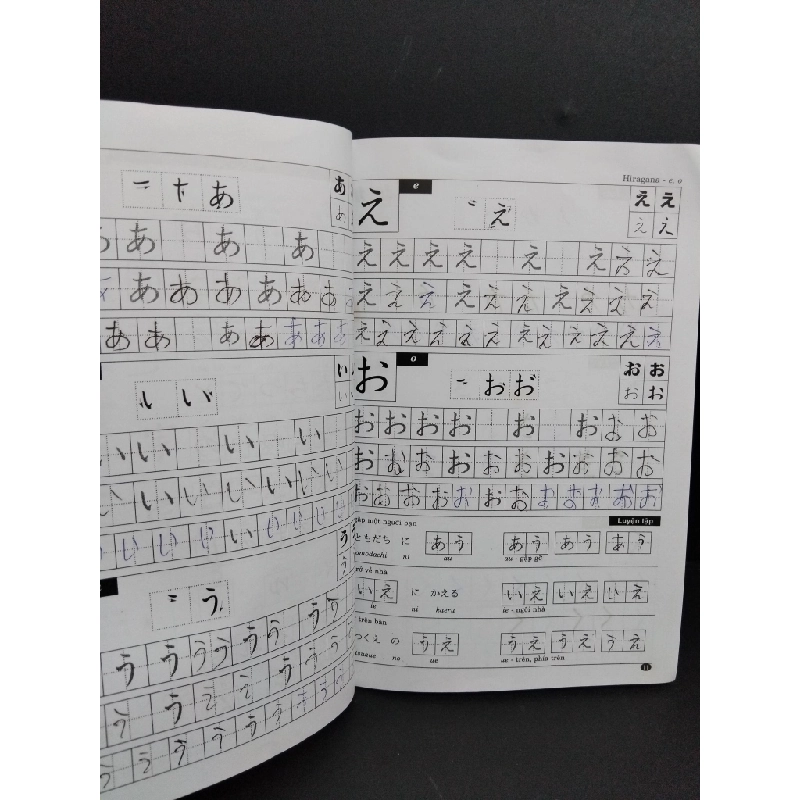 あ
あ
あ あ あ
あ あ あ あ あ あ
あ あ あ あ あ あ あ
い
い
い い い い
い い い い い い い
い い い い い い い
う
う
う
う う う う う う う
う う う う う う う
う う う う う う う
Hiragana - e, o
え e え え え
え え
え え え え え え え え
え え え え え え え え え え
え え え え え え え え え え え え
お o お お お お
お お
お お お お お お お お
お お お お お お お お お お
お お お お お お お お お お お
một người bạn Luyện tập
ともだち に あう あう あう あう
ni au au - gặp gỡ
về nhà
いえ に かえる いえ いえ いえ
ie ni kaeru ie - ngôi nhà
trên bàn
つくえ の うえ うえ うえ うえ
no ue ue - trên, phía trên
11